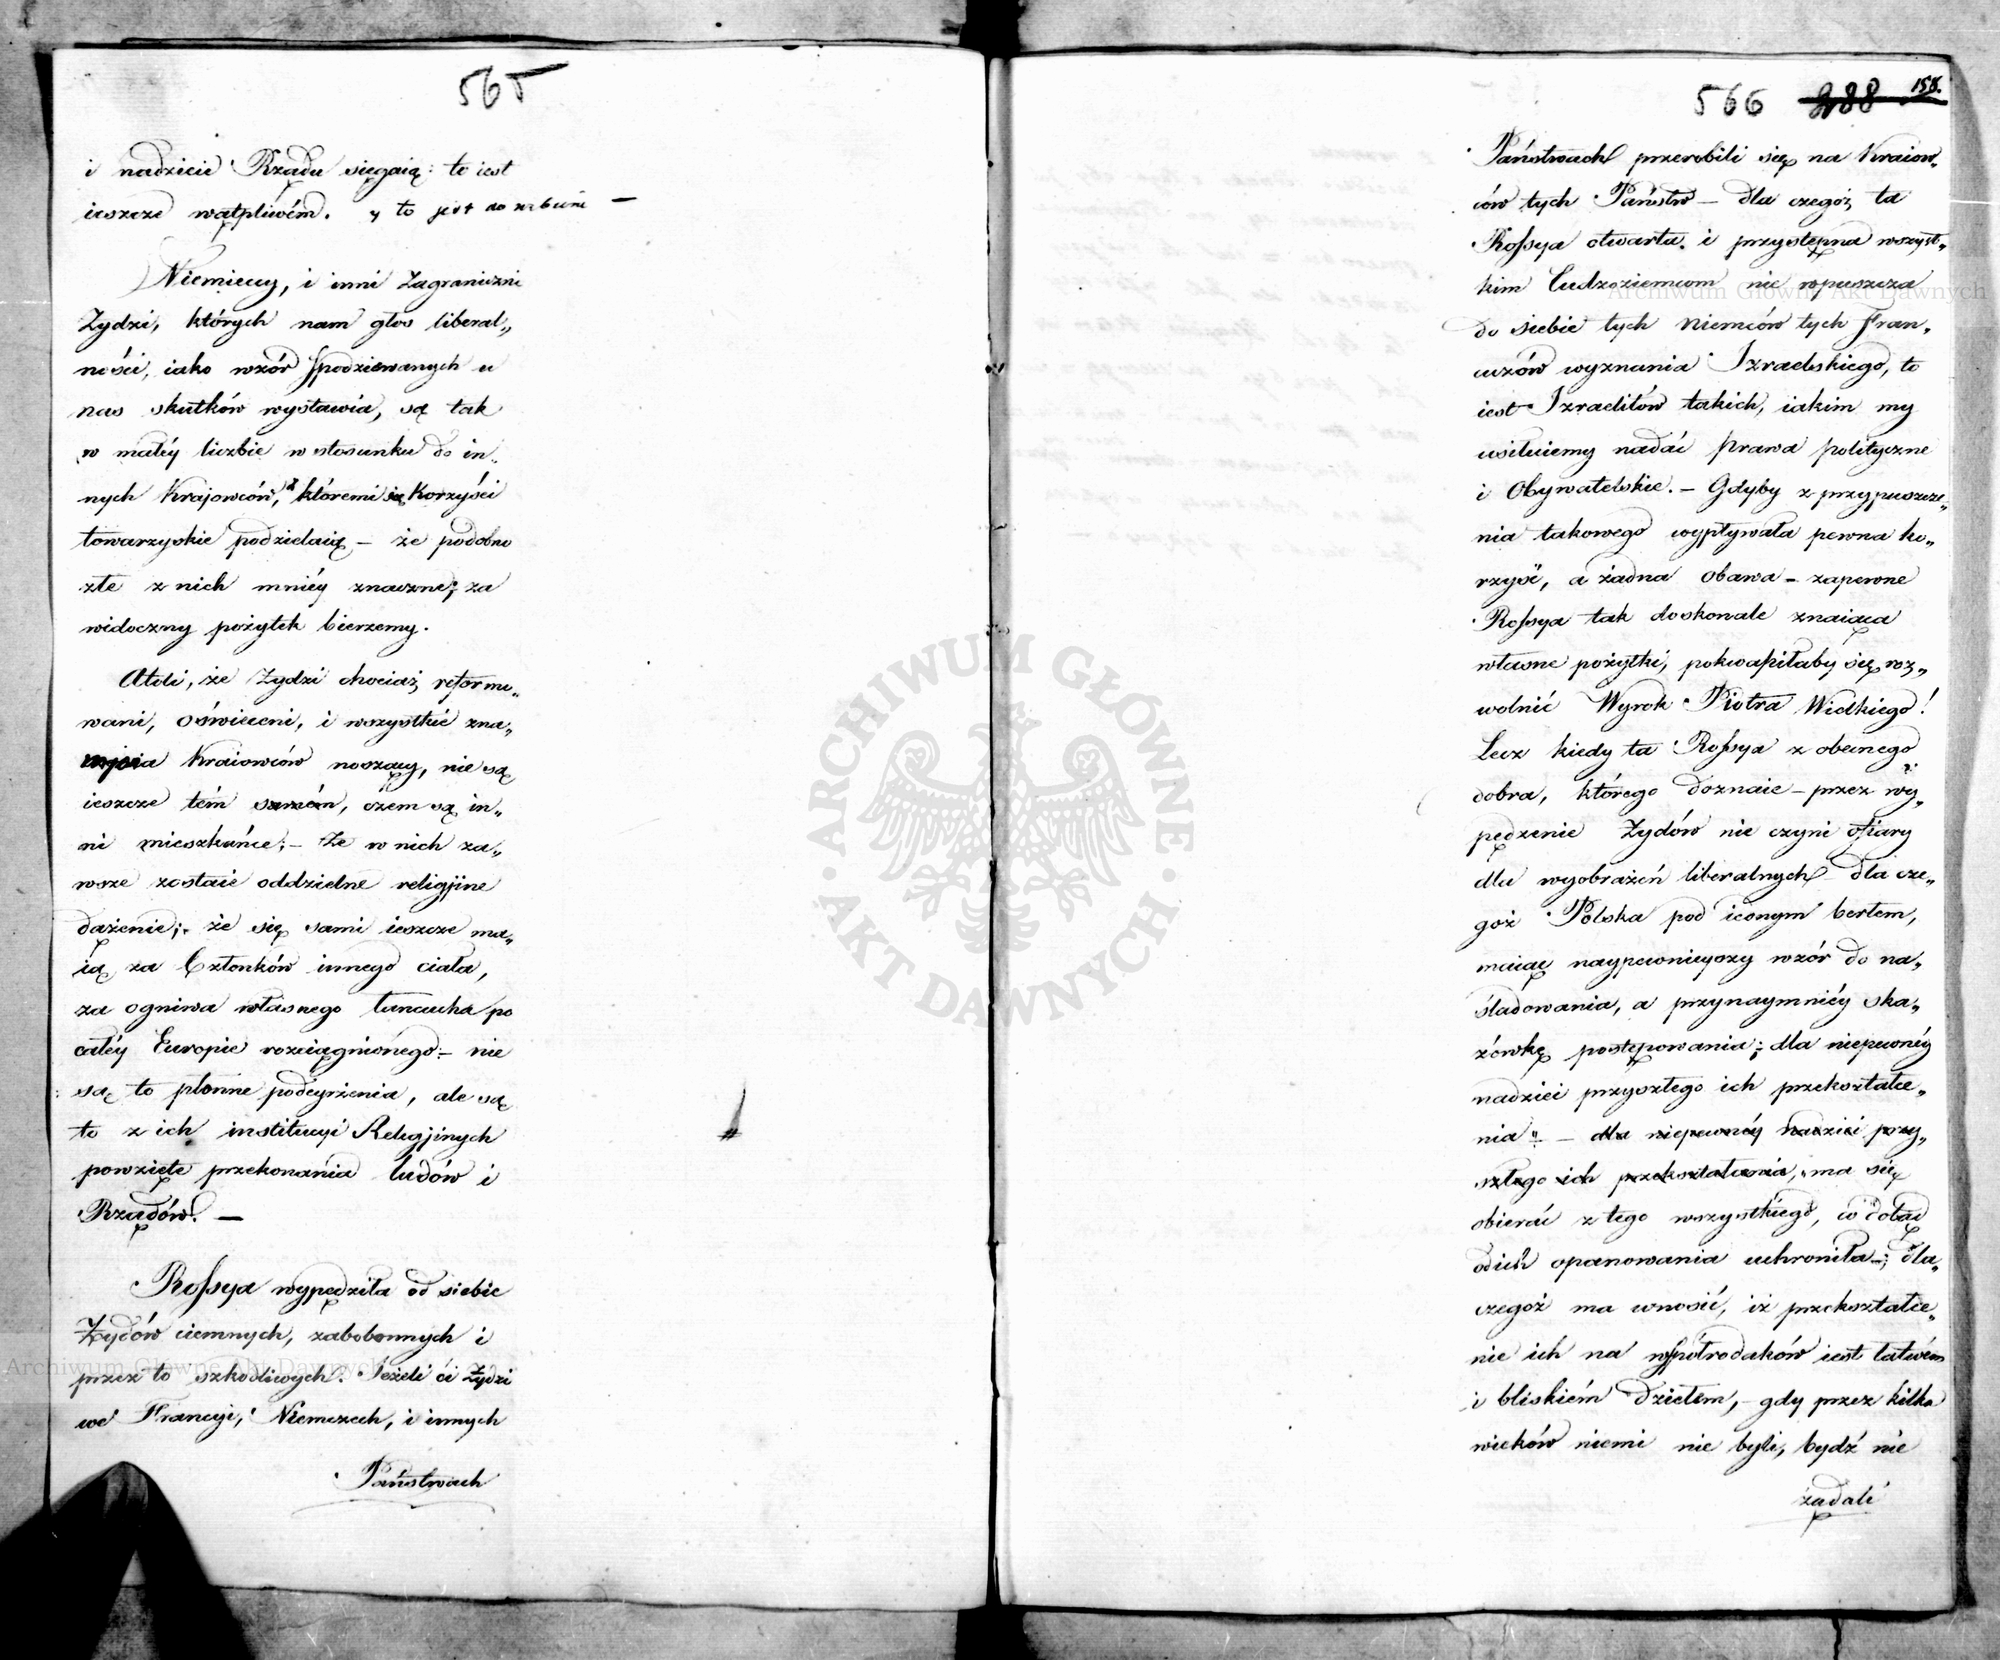 565
i nadzieie Rządu sięgaią: to iest
ieszcze wątpliwém. y to jest do
Niemieccy, i inni Zagraniczni
Żydzi, których nam głos liberal„
ności, iako wzór spodziewanych u
nas skutków wystawia, są tak
w małéy liczbie w stosunku do in„
nych Krajowców, z któremi się Korzyści
towarzyskie podzielaią – że podobno
złe z nich mniéy znaczne, za
widoczny pożytek bierzemy.
Atoli, że Żydzi chociaż reformo„
wani, oświeceni, i wszystkie zna„
miona Kraiowców noszący, nie są
ieszcze tém samém, czem są in„
ni mieszkańce; – Że w nich za„
wsze zostaie oddzielne religijine
dążenie; że się sami ieszcze ma„
ią za Członków innego ciała,
za ogniwa własnego łancucha po
całéy Europie rozciągnionego: – nie
są to płonne podeyrżenia, ale są
to z ich instytucyi Religijinych
powzięte przekonania ludów i
Rządów. –
Rossya wypędziła od siebie
Żydów ciemnych, zabobonnych i
przez to szkodliwych. Jeżeli ci Żydzi
we Francyi, Niemczech, i innych
Państwach
566 288 158.
Państwach przerobili się na Kraiow„
ców tych Państw – dla czegoż ta
Rossya otwarta i przystępna wszyst„
kim Cudzoziemcom nie wpuszcza
do siebie tych Niemców tych Fran„
cuzów wyznania Izraelskiego, to
iest Izraelitów takich, iakim my
usiłuiemy nadać prawa polityczne
i Obywatelskie. – Gdyby z przypuszcze„
nia takowego wypływała pewna ko„
rzyść, a żadna obawa – zapewne
Rossya tak doskonale znaiąca
własne pożytki, pokwapiłaby się roz„
wolnić Wyrok Piotra Wielkiego!
Lecz kiedy ta Rossya z obecnego
dobra, którego doznaie – przez wy„
pędzenie Żydów nie czyni ofiary
dla wyobrażeń liberalnych – dla cze„
goż Polska pod iednym berłem,
maiąc naypewnieyszy wzór do na„
śladowania, a przynaymniéy ska„
zówkę postępowania; dla niepewnéy
nadziei przyszłego ich przekształce„
nia – dla niepewnéy nadziei przy„
szłego ich przekształcenia, ma się
obierać z tego wszystkiego, co dotąd
od ich opanowania uchroniła –; dla„
czegoż ma wnosić, iż przekształce„
nie ich na współrodaków iest łatwém
i bliskiém dziełem, – gdy przez kilka
wieków niemi nie byli, bydź nie
żądali
Archiwum Główne Akt Dawnych
Archiwum Główne Akt Dawnych
ARCHIWUM GŁÓWNE
AKT DAWNYCH